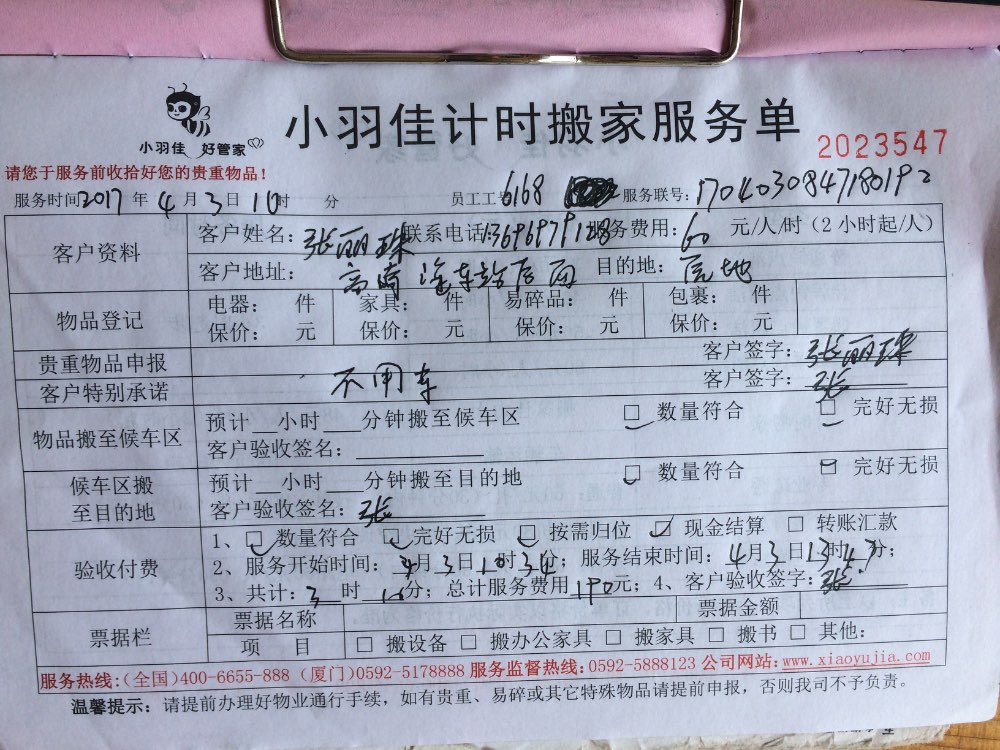 小羽佳 好管家
小羽佳计时搬家服务单
2023547
请您于服务前收拾好您的贵重物品！
服务时间2017年4月3日10时 分 员工工号6168 服务联号：1704030847180192
客户资料 客户姓名：张丽珠 联系电话：13696979128 服务费用：60 元/人/时（2小时起/人）
客户地址：高崎汽车站后面 目的地：原地
物品登记 电器： 件 家具： 件 易碎品： 件 包裹： 件
保价： 元 保价： 元 保价： 元 保价： 元
贵重物品申报 客户签字：张丽珠
客户特别承诺 不用车 客户签字：张
物品搬至候车区 预计__小时___分钟搬至候车区 □ 数量符合 □ 完好无损
客户验收签名：
候车区搬至目的地 预计__小时___分钟搬至目的地 □ 数量符合 □ 完好无损
客户验收签名：张
验收付费 1、□ 数量符合 □ 完好无损 □ 按需归位 ☑ 现金结算 □ 转账汇款
2、服务开始时间：4月3日10时34分；服务结束时间：4月3日13时47分；
3、共计：3时10分；总计服务费用190元；4、客户验收签字：张
票据栏 票据名称 票据金额
项 目 □ 搬设备 □ 搬办公家具 □ 搬家具 □ 搬书 □ 其他：
服务热线：(全国)400-6655-888 (厦门)0592-5178888 服务监督热线：0592-5888123 公司网站：www.xiaoyujia.com
温馨提示：请提前办理好物业通行手续，如有贵重、易碎或其它特殊物品请提前申报，否则我司不予负责。